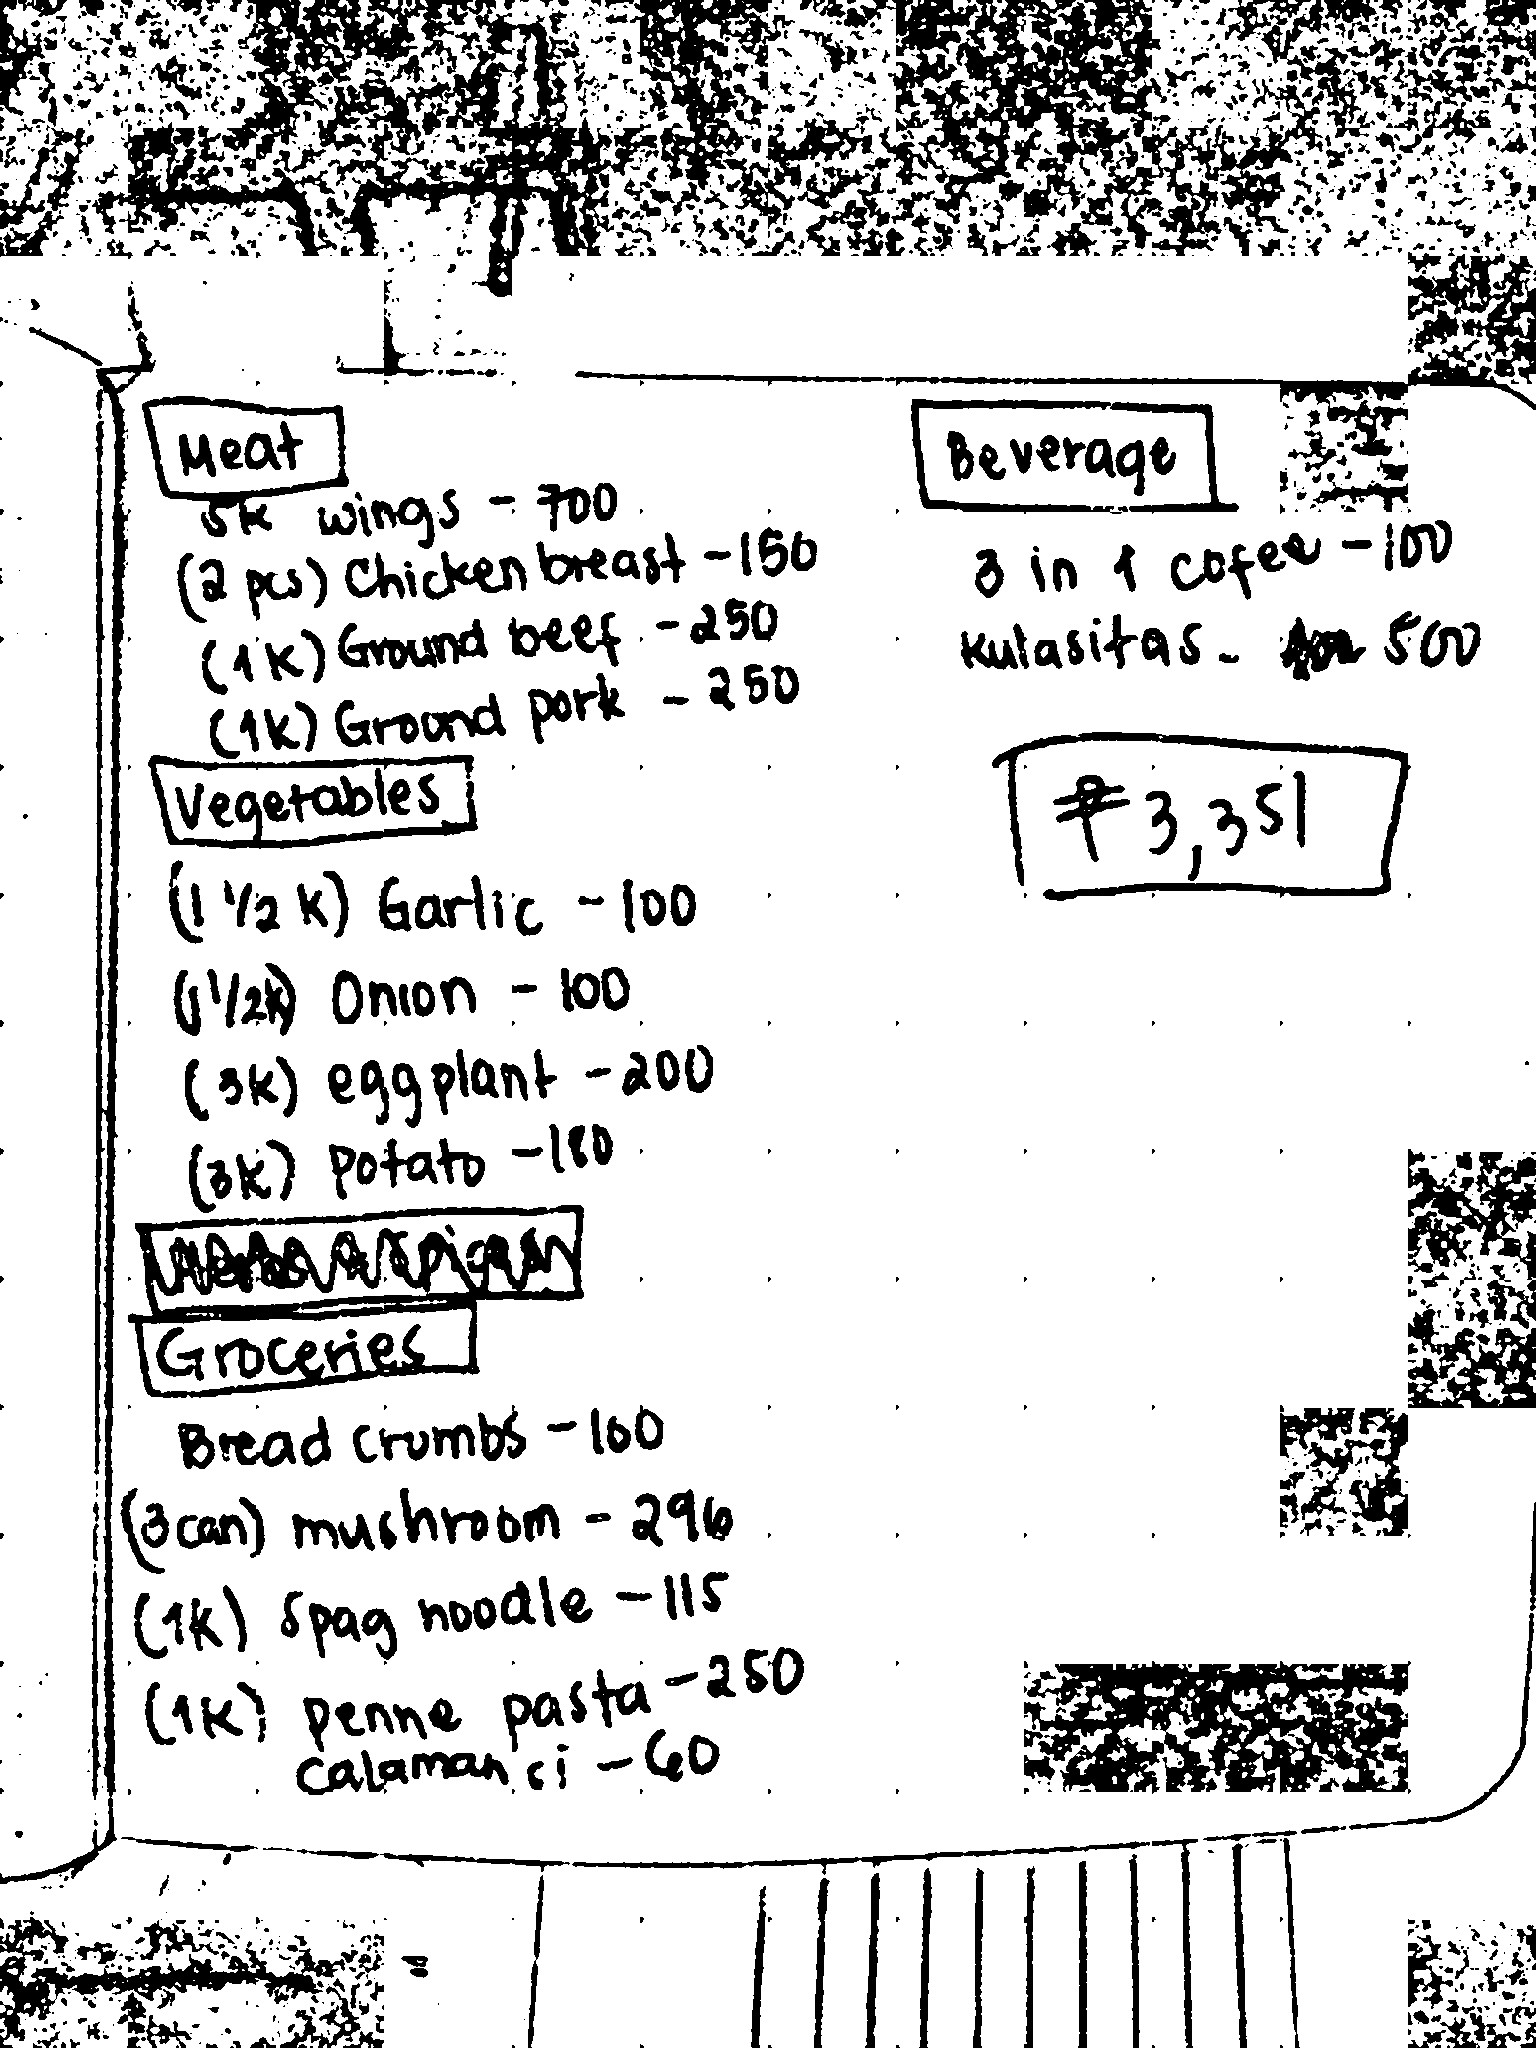 Meat
5k wings - 700
(2 pcs) Chicken breast - 150
(1k) Ground beef - 250
(1k) Ground pork - 250
Vegetables
(1 1/2 k) Garlic - 100
(1 1/2k) Onion - 100
(3k) eggplant - 200
(3k) potato - 180
Groceries
Bread crumbs - 100
(3 can) mushroom - 296
(1k) Spag noodle - 115
(1k) penne pasta - 250
calamansi - 60
Beverage
3 in 1 cofee - 100
kulasitas - 500
₱ 3,351